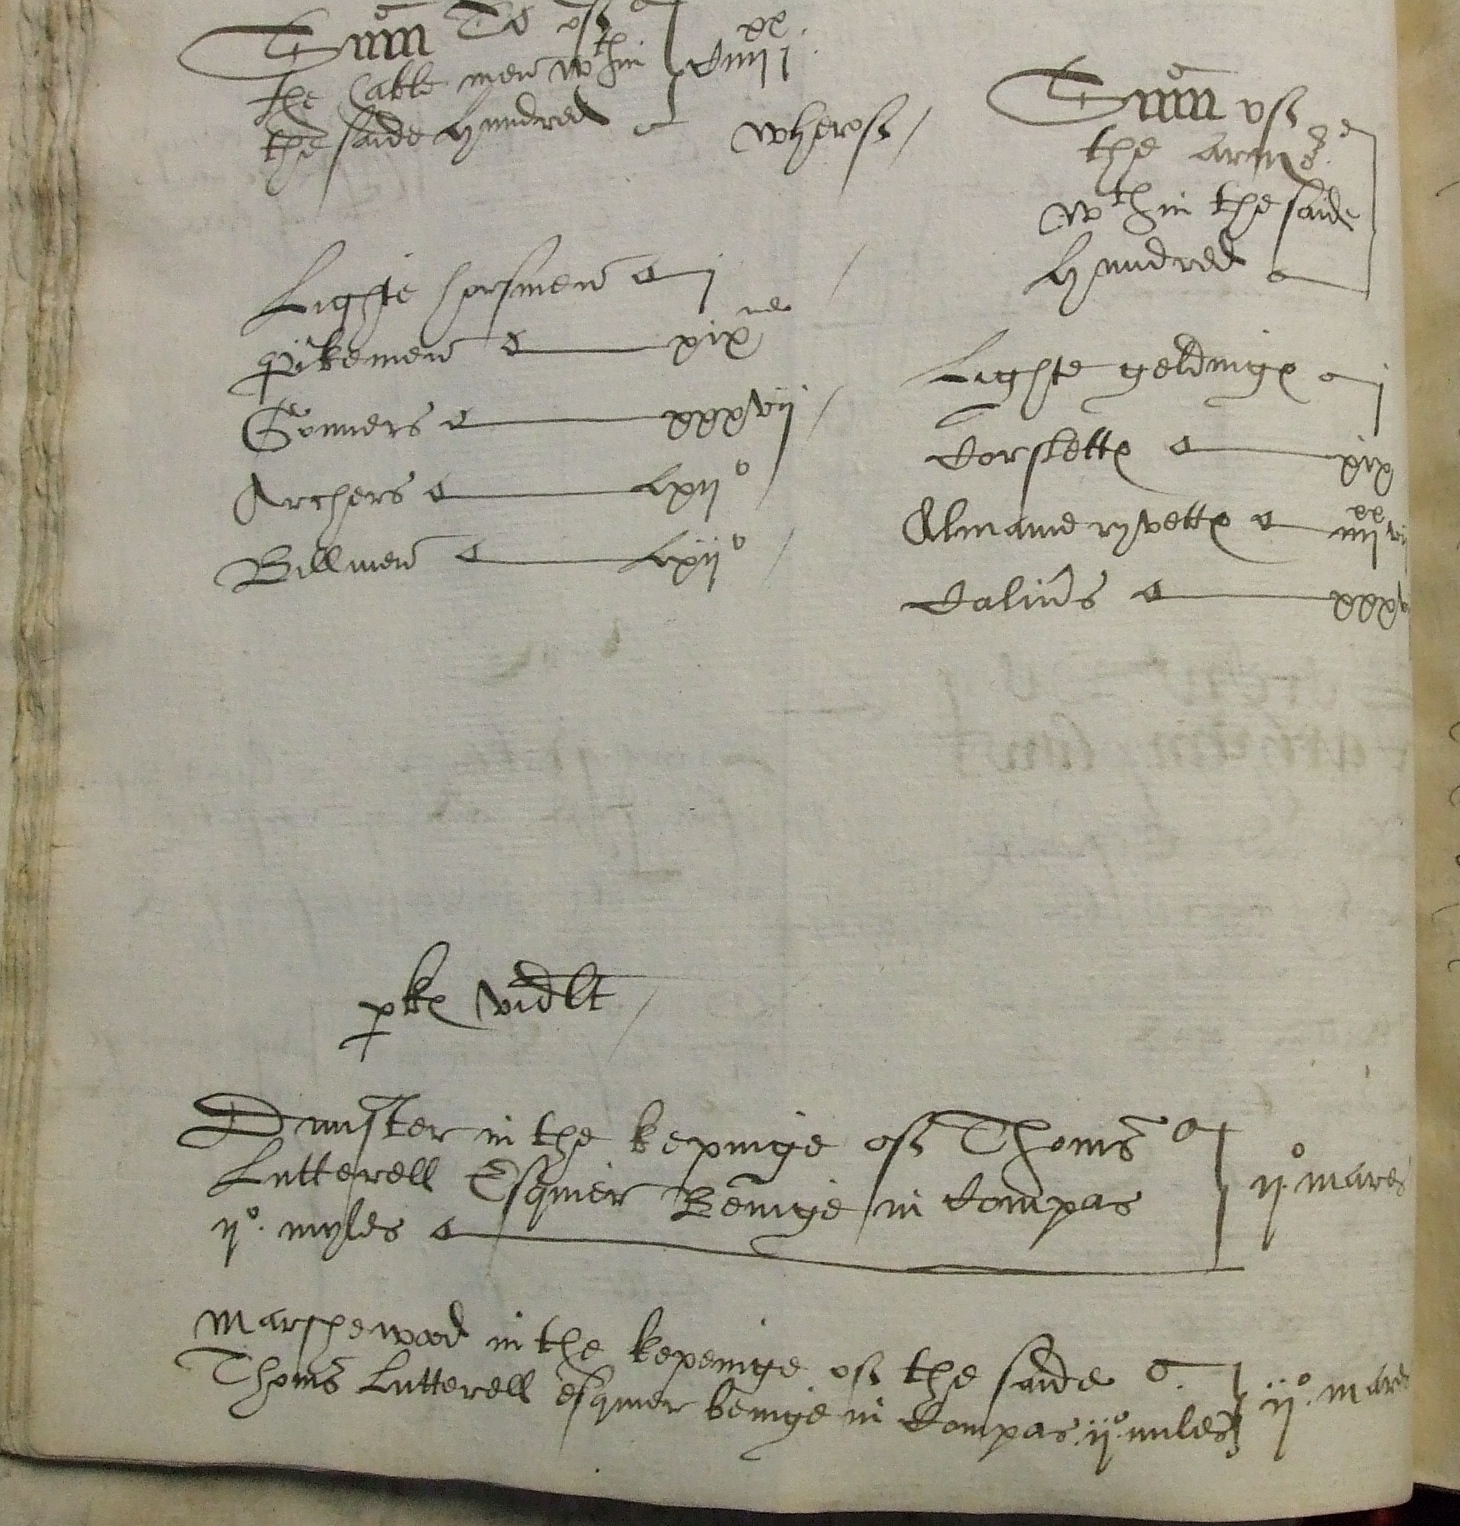 Sum To of
the hable men wthin
the saide hundred
Ciiijxx j
wherof /
Lighte horsmen j
pikemen xixne
Gonners xxxvij /
Archers Lxijo
Billmen Lxijo
Sum of
the arm
wthin the saide
hundred
Lighte gelding j
Corslett xix
Almaine ryvett iiijxx
Calius xxx
pk vidlt /
Dunster in the kepinge of Thoms
Lutterell Esquier Beinge in Compas
ijo myles
ijo mares
Marshewood in the kepeinge of the saide
Thoms Lutterell esquier beinge in Compas ijo miles
ijo mar